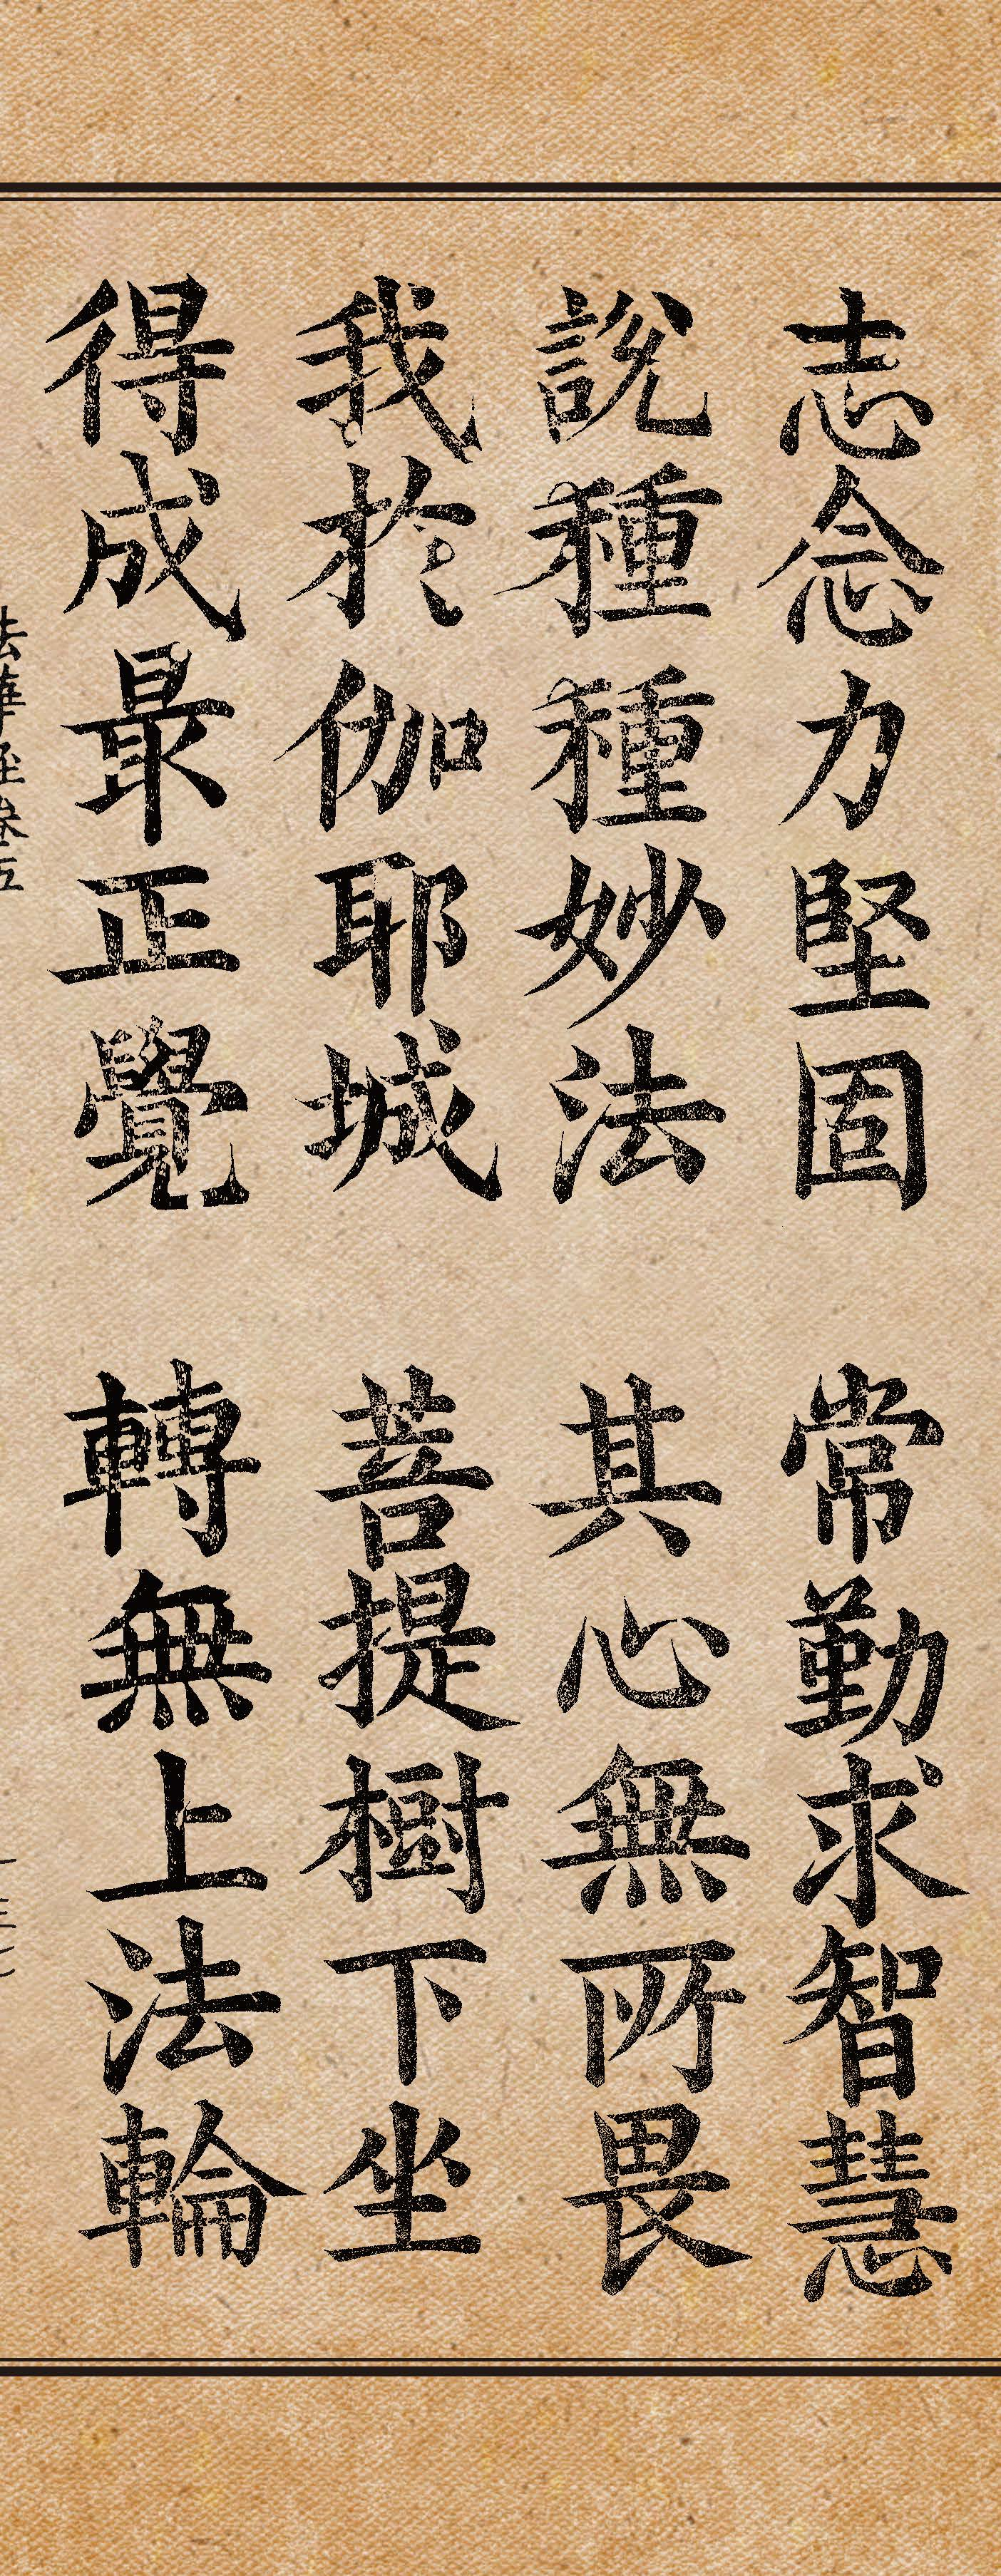 志念力堅固 常勤求智慧
說種種妙法 其心無所畏
我於伽耶城 菩提樹下坐
得成最正覺 轉無上法輪
法華經卷五